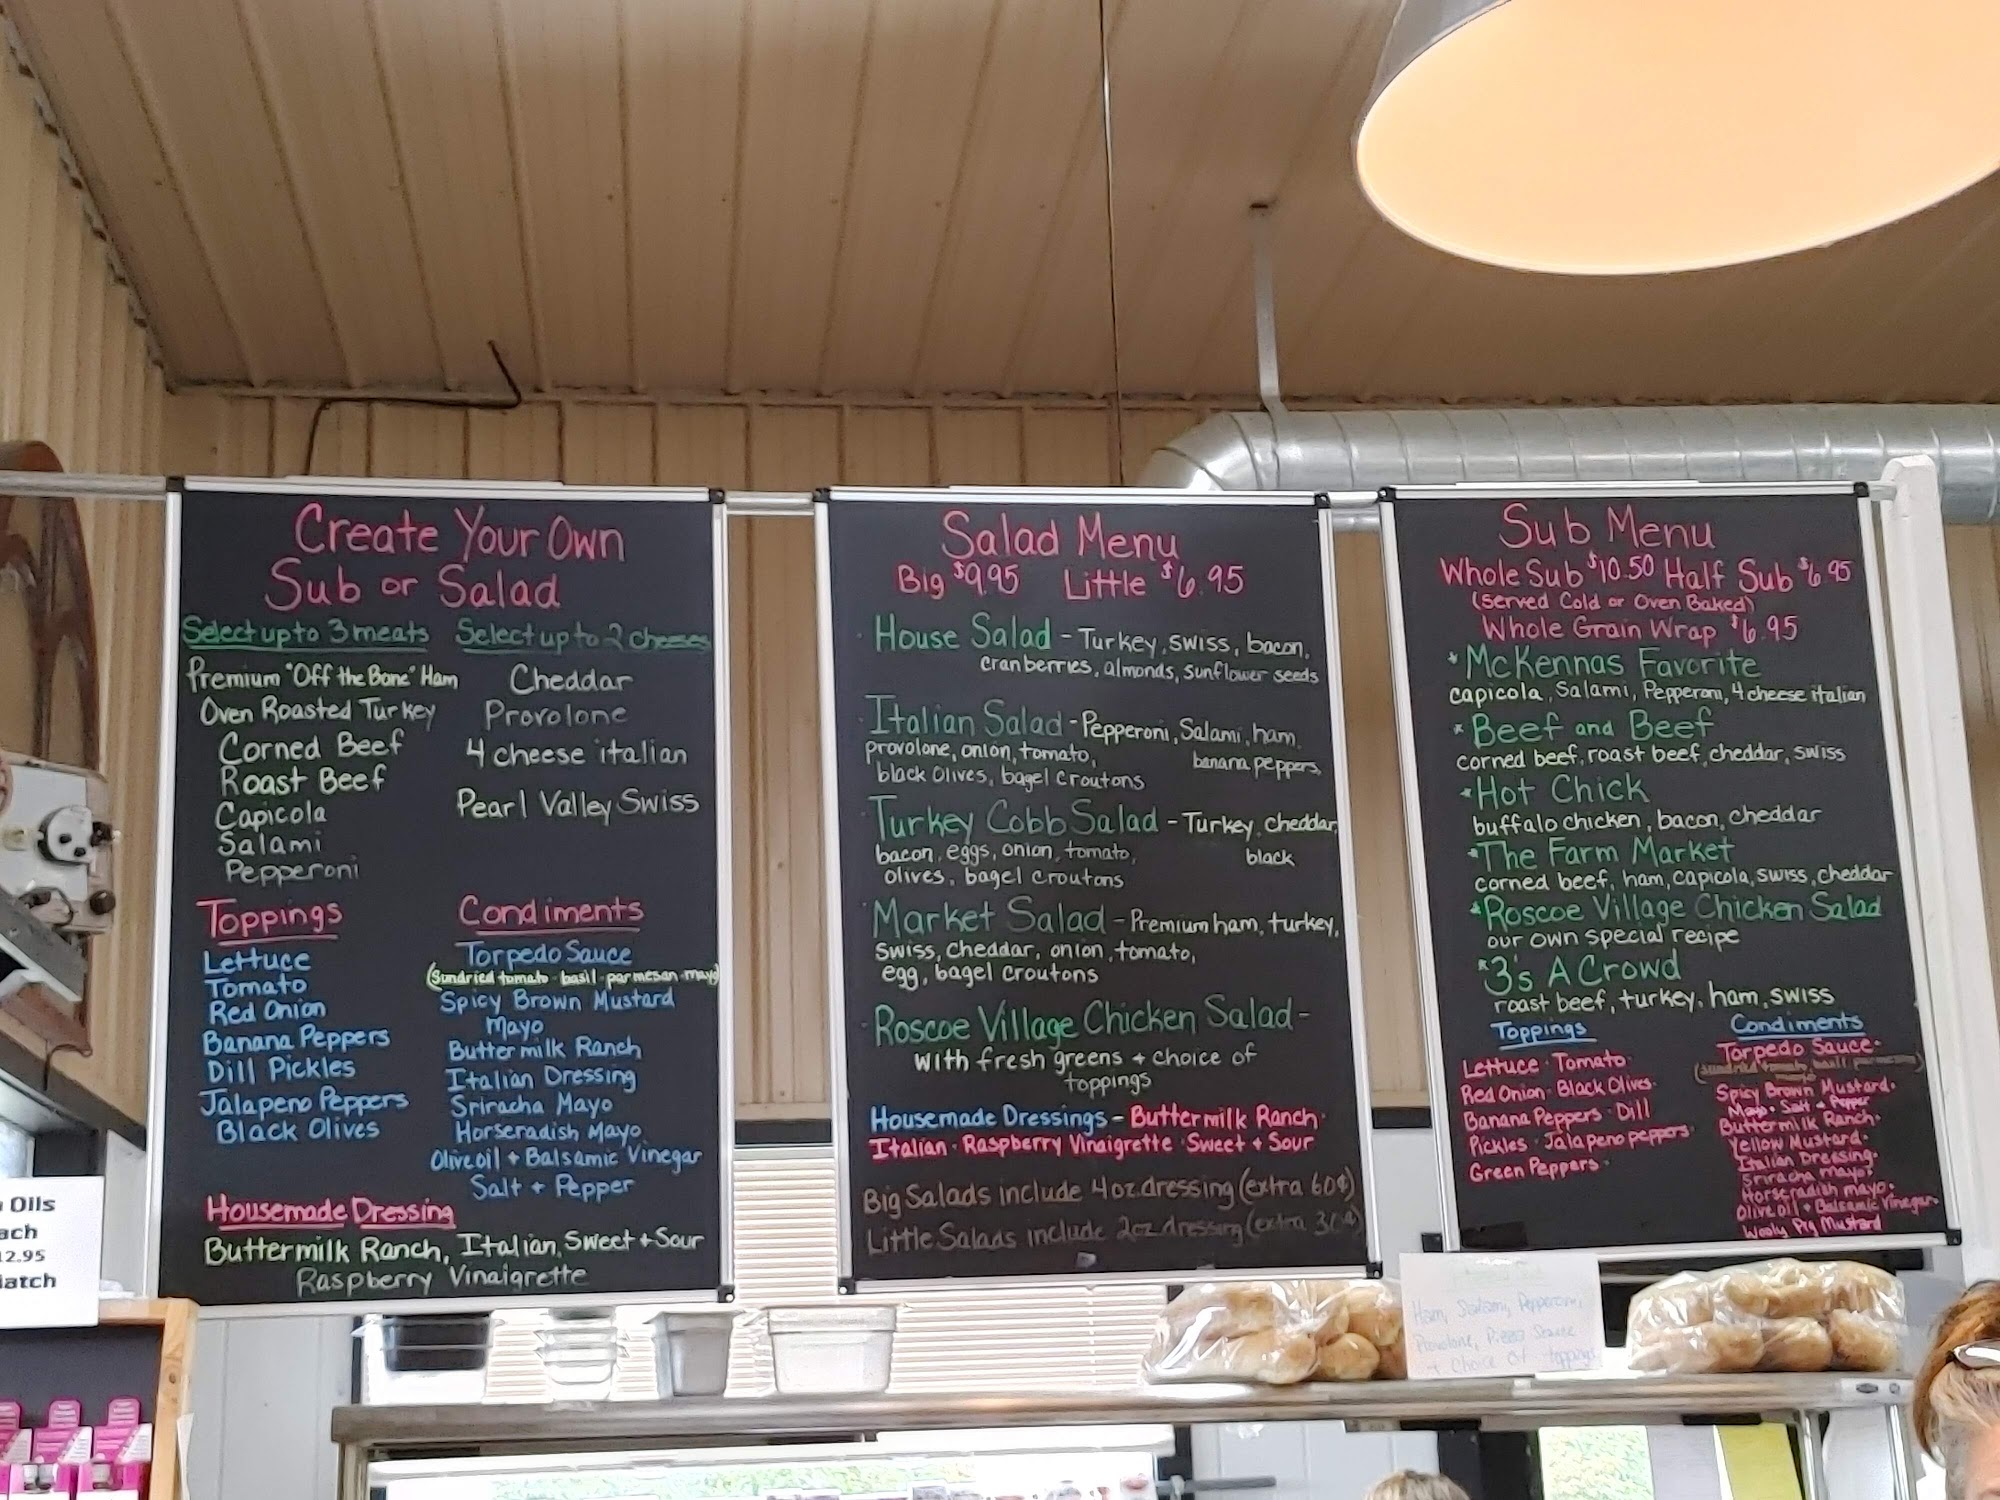 Create Your Own
Sub or Salad
Select up to 3 meats
Premium "Off the Bone" Ham
Oven Roasted Turkey
Corned Beef
Roast Beef
Capicola
Salami
Pepperoni
Select up to 2 cheeses
Cheddar
Provolone
4 cheese italian
Pearl Valley Swiss
Toppings
Lettuce
Tomato
Red Onion
Banana Peppers
Dill Pickles
Jalapeno Peppers
Black Olives
Condiments
Torpedo Sauce
(Sundried tomato basil parmesan mayo)
Spicy Brown Mustard
Mayo
Buttermilk Ranch
Italian Dressing
Sriracha Mayo
Horseradish Mayo
Olive oil + Balsamic Vinegar
Salt + Pepper
Housemade Dressing
Buttermilk Ranch, Italian, Sweet + Sour
Raspberry Vinaigrette
Salad Menu
Big $9.95 Little $6.95
House Salad - Turkey, swiss, bacon,
cranberries, almonds, sunflower seeds
Italian Salad - Pepperoni, Salami, ham,
provolone, onion, tomato, banana peppers,
black olives, bagel croutons
Turkey Cobb Salad - Turkey, cheddar,
bacon, eggs, onion, tomato, black
olives, bagel croutons
Market Salad - Premium ham, turkey,
swiss, cheddar, onion, tomato,
egg, bagel croutons
Roscoe Village Chicken Salad -
with fresh greens + choice of
toppings
Housemade Dressings - Buttermilk Ranch ·
Italian · Raspberry Vinaigrette · Sweet + Sour
Big Salads include 4oz. dressing (extra 60¢)
Little Salads include 2oz dressing (extra 30¢)
Sub Menu
Whole Sub $10.50 Half Sub $6.95
(Served Cold or Oven Baked)
Whole Grain Wrap $6.95
* McKennas Favorite
capicola, Salami, Pepperoni, 4 cheese italian
* Beef and Beef
corned beef, roast beef, cheddar, swiss
* Hot Chick
buffalo chicken, bacon, cheddar
* The Farm Market
corned beef, ham, capicola, swiss, cheddar
* Roscoe Village Chicken Salad
our own special recipe
* 3's A Crowd
roast beef, turkey, ham, swiss
Toppings
Lettuce · Tomato ·
Red Onion · Black Olives ·
Banana Peppers · Dill
Pickles · Jalapeno peppers ·
Green Peppers ·
Condiments
Torpedo Sauce ·
(sundried tomato, basil parmesan
mayo)
Spicy Brown Mustard ·
Mayo · Salt + Pepper
Buttermilk Ranch ·
Yellow Mustard ·
Italian Dressing ·
Sriracha mayo ·
Horseradish mayo ·
Olive oil + Balsamic Vinegar ·
Wooly Pig Mustard
Oils
ach
12.95
Ham, Salami, Pepperoni,
Provolone, Pizza Sauce
+ Choice Of toppings